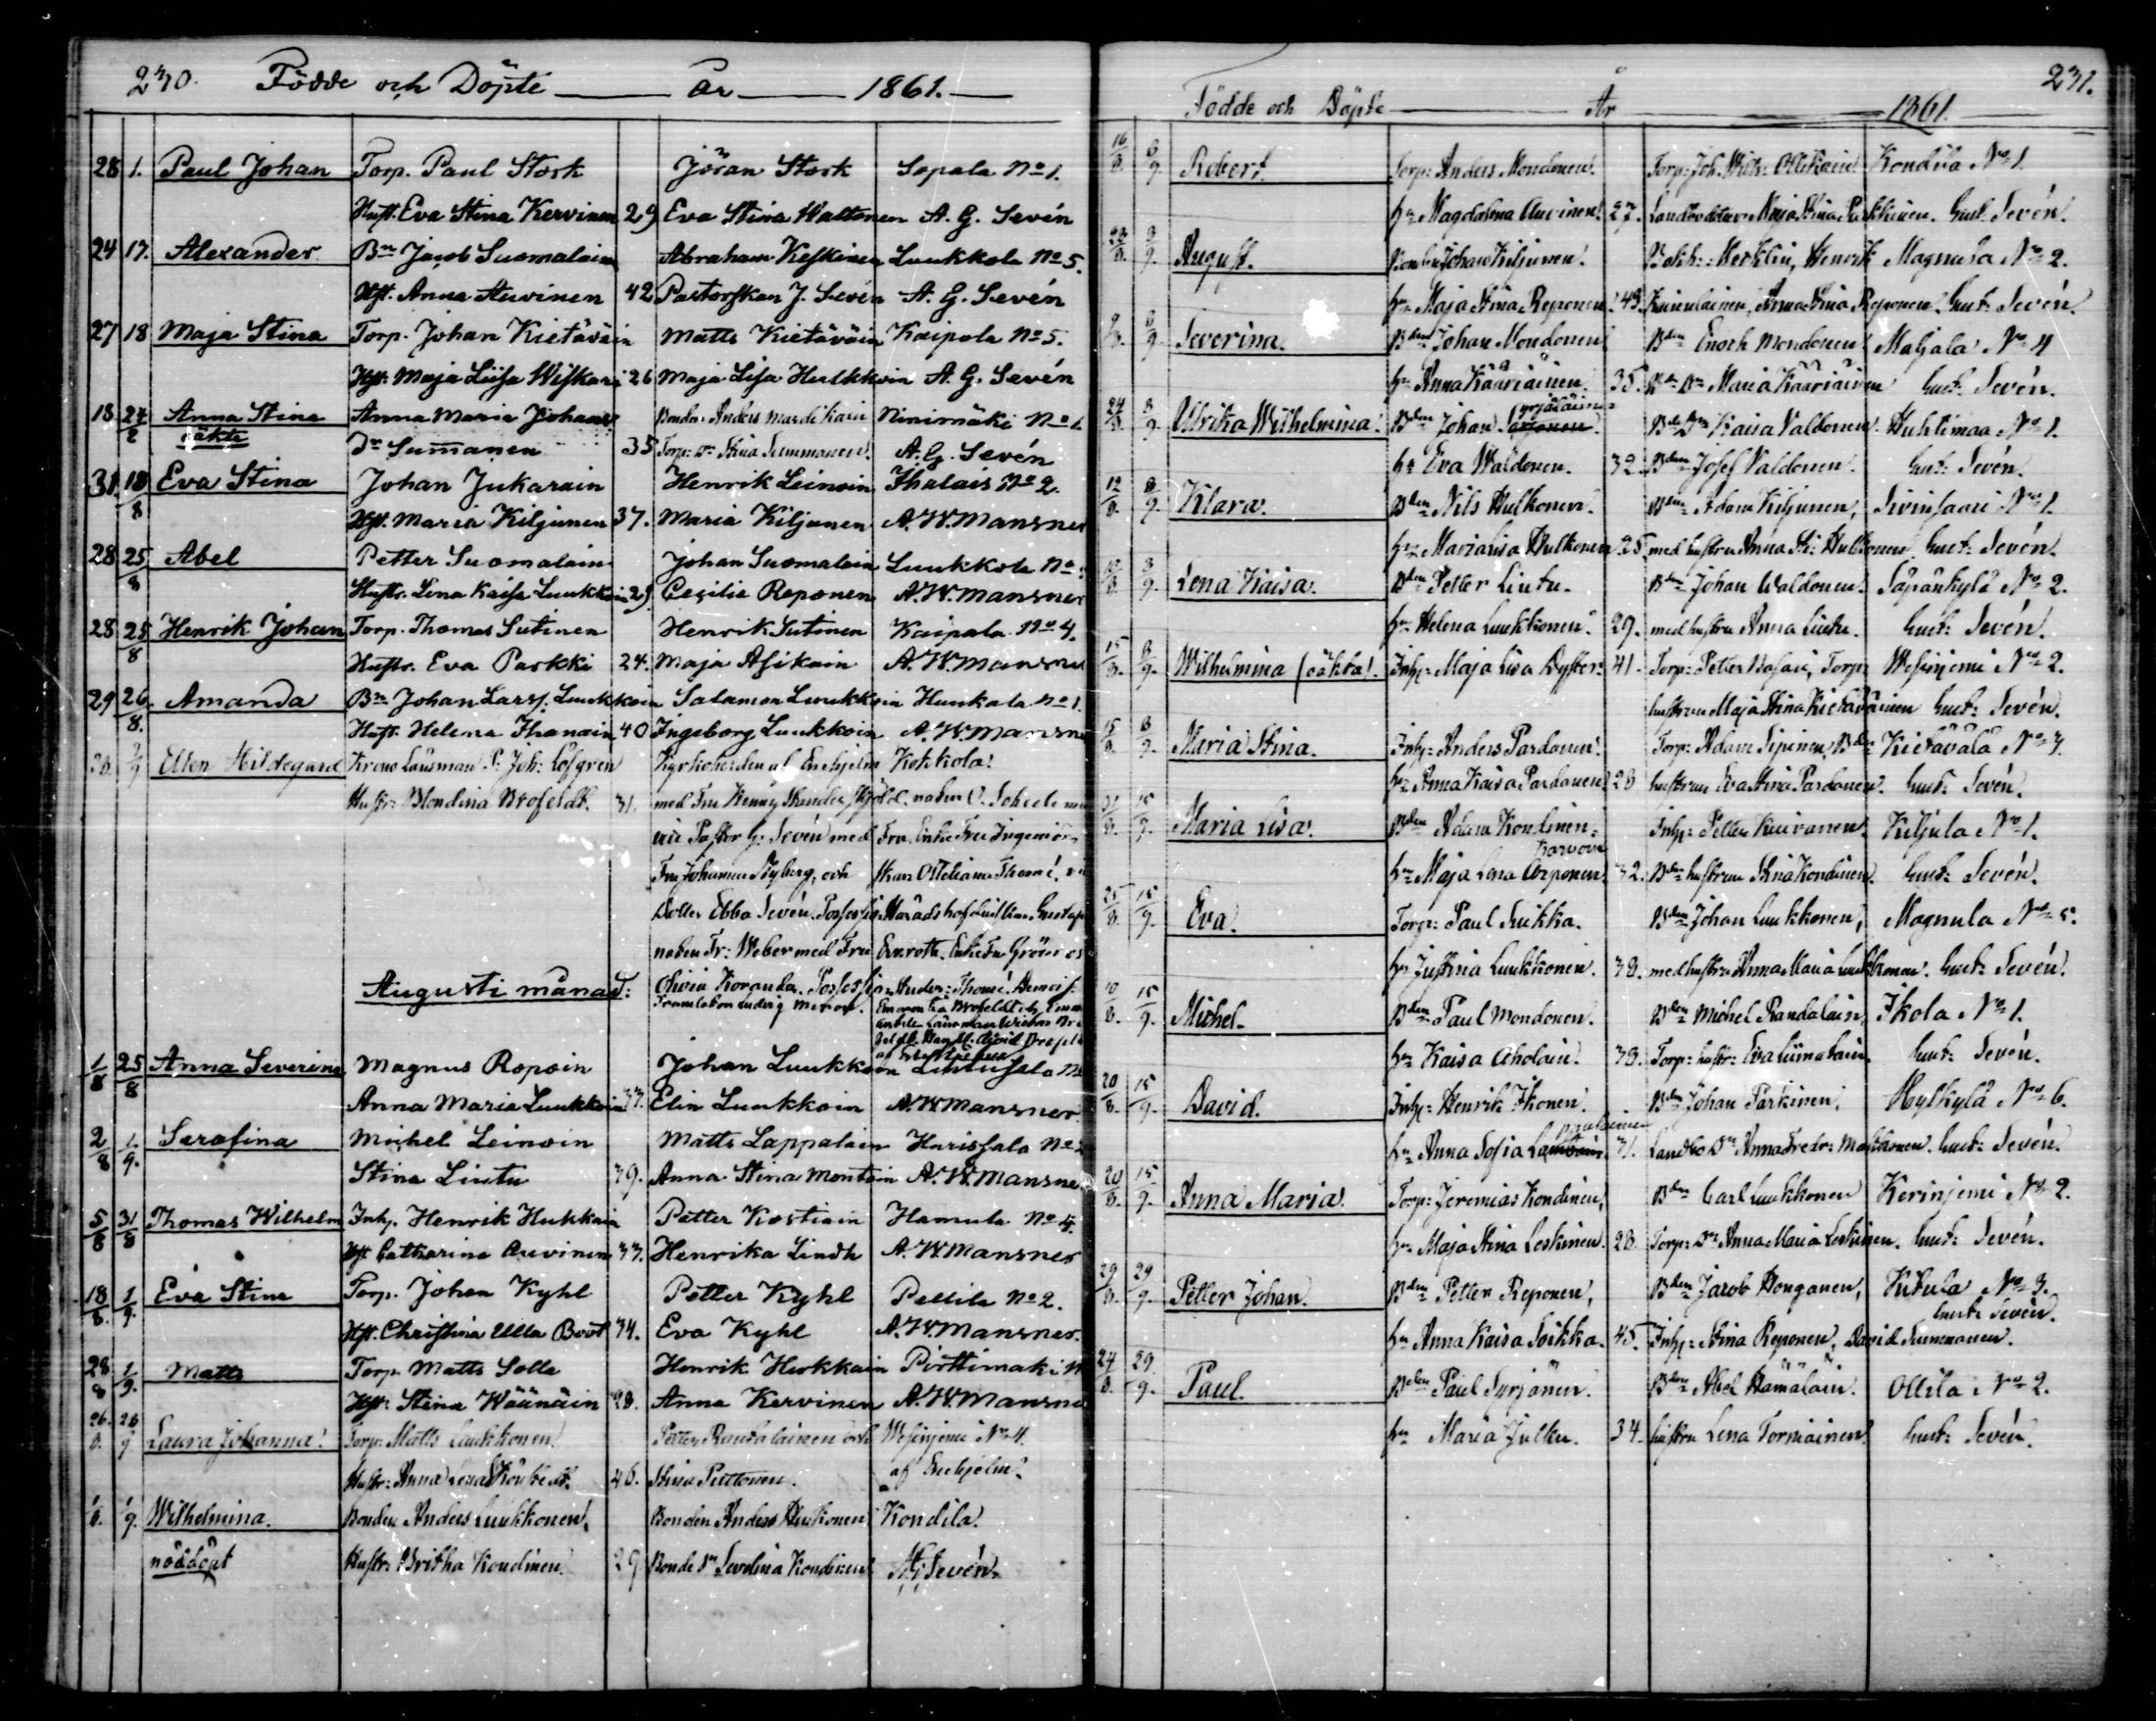 230. Födde och Döpte år 1861.
28 1. Paul Johan Torp. Paul Stork Jöran Stork Sopala No 1.
Hust. Eva Stina Kervinen 29 Eva Stina Waltonen A. G. Sevén
24 17. Alexander Bn Jacob Suomalain Abraham Keskinen Luukkola No 5.
Hst. Anna Auvinen 42 Pastorskan J. Sevén A. G. Sevén
27 18 Maja Stina Torp. Johan Kietäväin Matts Kietäväin Kaipola No 5.
Hst. Maja Liisa Wiskari 26 Maja Lisa Hulkkoin A. G. Sevén
18 24/2 Anna Stina Anna Maria Johans Bonden Anders Mandikain Ninimäki No 1.
oäkta Dr Summanen 35 Torp: Dr Stina Summanen A. G. Sevén
31. 18/8 Eva Stina Johan Jukarain Henrik Leinoin Ihalais No 2.
Hst. Maria Kiljunen 37. Maria Kiljunen A. W. Mansner
28 25/8 Abel Petter Suomalain Johan Suomalain Luukkola No
Hustr. Lena Kaisa Luukkoin 29 Cecilie Reponen A. W. Mansner
28 25/8 Henrik Johan Torp. Thomas Sutinen Henrik Sutinen Kaipola No 4.
Hustr. Eva Parkki 24. Maja Asikain A. W. Mansner
29 26/8. Amanda Bn Johan Larss. Luukkoin Salamon Luukkoin Hunkala No 1.
Hust. Helena Ihanain 40 Ingeborg Luukkoin A. W. Mansner
Ellen Hildegard Krono Länsman P. Joh: Löfgren Kyrkoherden af Enehjelm Kokkola
Hustr: Blondina Brofeldt. 31. med Fru
Pastor G. Sevén med Fru Enke Fru Ingeniör
Fru Johanna Nyberg, och
Ebba Sevén.
Fr: Weber med Fru
Augusti månad:
1/8 25/8 Anna Severina Magnus Ropoin Johan Luukkoin
Anna Maria Luukkoin 33. Elin Luukkoin A. W. Mansner
2/8 1/9. Serafina Michel Leinoin Matts Lappalain Harissalo No
Stina Lintu 39. Anna Stina Montoin A. W. Mansner
5/8 31/8 Thomas Wilhelm Inh. Henrik Hukkain Petter Kostiain Hamula No 4.
Hst Catharina Auvinen 33. Henrika Lindh A. W. Mansner
18/8. 1/9. Eva Stina Torp. Johan Kyhl Petter Kyhl Pellila No 2.
Hst. Christina Ulla Boot 34. Eva Kyhl A. W. Mansner.
28/8 1/9. Matts Torp. Matts Solla Henrik Hukkain Pirttimäki N
Hst: Stina Wäänäin 28. Anna Kervinen A. W. Mansner
26/8. 28/9 Laura Johanna Torp: Matts Luukkonen Petter Randalainen och Wesinjemi No 4.
Hustr: Anna Lena 46. Stina Puttonen. af Enehjelm.
1/8. 1/9. Wilhelmina. Bonden Anders Luukkonen, Bonden Anders Hukkonen Kondila.
nöddöpt Hustr: Britha Kondinen 29 Bonde Dr Sevelina Kondinen A. G. Sevén.
Födde och Döpte År 1861. 231.
16/8. 8/9. Robert. Torp: Anders Mondonen. Torp: Joh. Wilh: Ollikain Kondila No 1.
hu Magdalena Auvinen. 27. Landbodotter Maja Stina Parkkinen. Gust: Sevén.
8/9. August. Bonden Johan Kiljunen. Bokh: Merklin, Henrik Magnula No 2.
hu Maja Stina Reponen. 43. Kainulainen, Anna Stina Reponen. Gust: Sevén.
9/8. 8/9. Severina. Bden Johan Mondonen Bden Enoch Mondonen Maljala No 4
hu Anna Kääriäinen. 35. Bde Dr Maria Kääriäinen Gust: Sevén.
24/8. 8/9. Ulrika Wilhelmina. Bden Johan Bde Dr Kaisa Valdonen. Huhtimaa No 1.
hu Eva Waldonen. 32. Bden Josef Valdonen. Gust: Sevén.
12/8. 8/9. Klara. Bden Nils Hulkonen. Bden Adam Kiljunen, Sivinsaari No 1.
hu Maria Lisa Hulkonen 25. med hustru Anna St: Hulkonen. Gust: Sevén.
12/8. 8/9. Lena Kaisa. Bden Petter Lintu. Bden Johan Waldonen. Säpänkylä No 2.
hu Helena Luukkonen. 29. med hustru Anna Lintu. Gust: Sevén.
15/8. 8/9. Wilhelmina (oäkta). Inh: Maja Lisa Dyster. 41. Torp: Petter Torp: Wesinjemi No 2.
hustrun Maja Stina Kietäväinen Gust: Sevén.
15/8. 8/9. Maria Stina. Inh: Anders Pardanen. Torp: Adam Sipinen, Bde Kietävälä No 7.
hu Anna Kaisa Pardanen 28 hustrun Eva Stina Pardanen. Gust: Sevén.
31/8. 15/9. Maria Lisa. Bden Adam Kondinen. Inh: Petter Kuivanen Kiljula No 1.
hu Maja Lena 32. Bden hustrun Stina Kondinen. Gust: Sevén.
25/8. 15/9. Eva. Torp: Paul Suikka. Bden Johan Luukkonen, Magnula No 5.
hu Justina Luukkonen. 38. med hustru Anna Maria Luukkonen. Gust: Sevén.
10/8. 15/9. Michel. Bden Paul Mondonen. Bden Michel Randalain, Ikola No 1.
hu Kaisa Aholain. 38. Torp: hustr: Eva Liimatain Gust: Sevén.
20/8. 15/9. David. Inh: Henrik Ikonen. Bden Johan Parkinen. Hylkylä No 6.
hu Anna Sofia 31. Landbo Dr Anna Fredr: Gust: Sevén.
20/8. 15/9. Anna Maria. Torp: Jeremias Kondinen, Bden Carl Luukkonen Kerinjemi No 2.
hu Maja Stina Leskinen. 28. Torp: Dr Anna Maria Leskinen. Gust: Sevén.
29/8. 29/9. Petter Johan. Bden Petter Reponen, Bden Jacob Honganen, Kukula No 3.
Gust: Sevén.
hu Anna Kaisa Soikka. 45. Inh: Stina Reponen, David Summanen.
24/8. 29/9. Paul. Bden Paul Syrjänen. Bden Abel Hämäläin. Ollila No 2.
hu Maria Julku. 34. hustru Lena Tormainen Gust: Sevén.